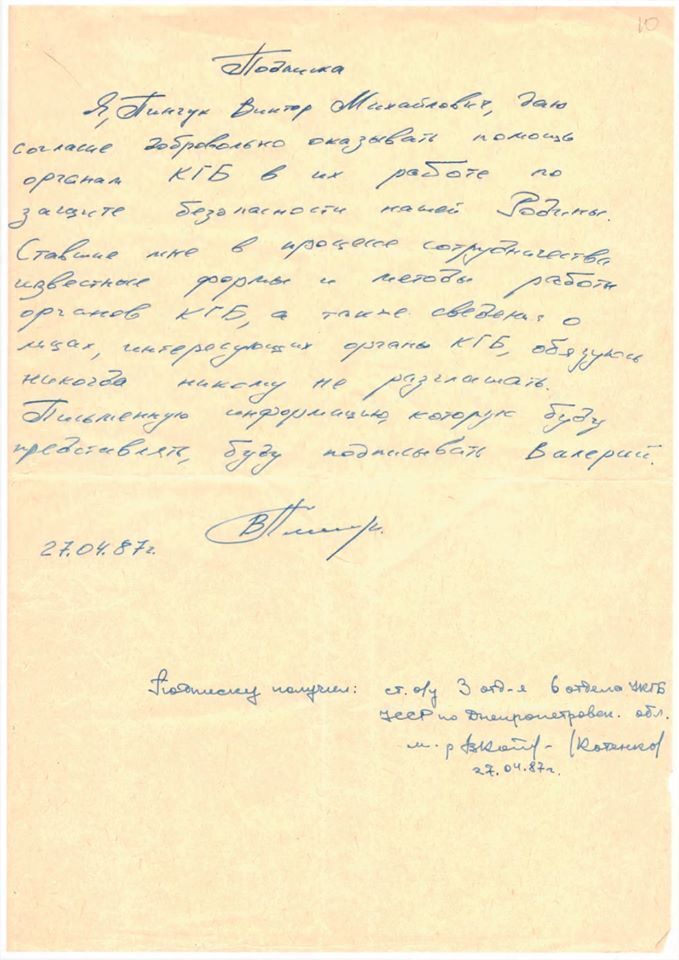 10
Подписка
Я, Пинчук Виктор Михайлович, даю
согласие добровольно оказывать помощь
органам КГБ в их работе по
защите безопасности нашей Родины.
Ставшие мне в процессе сотрудничества
известные формы и методы работы
органов КГБ, а также сведения о
лицах, интересующих органы КГБ, обязуюсь
никогда никому не разглашать.
Письменную информацию, которую буду
представлять, буду подписывать Валерий.
27.04.87г.
Подписку получил: ст. о/у 3 отд-я 6 отдела УКГБ
УССР по Днепропетровск. обл.
м-р (Котенко)
27.04.87г.